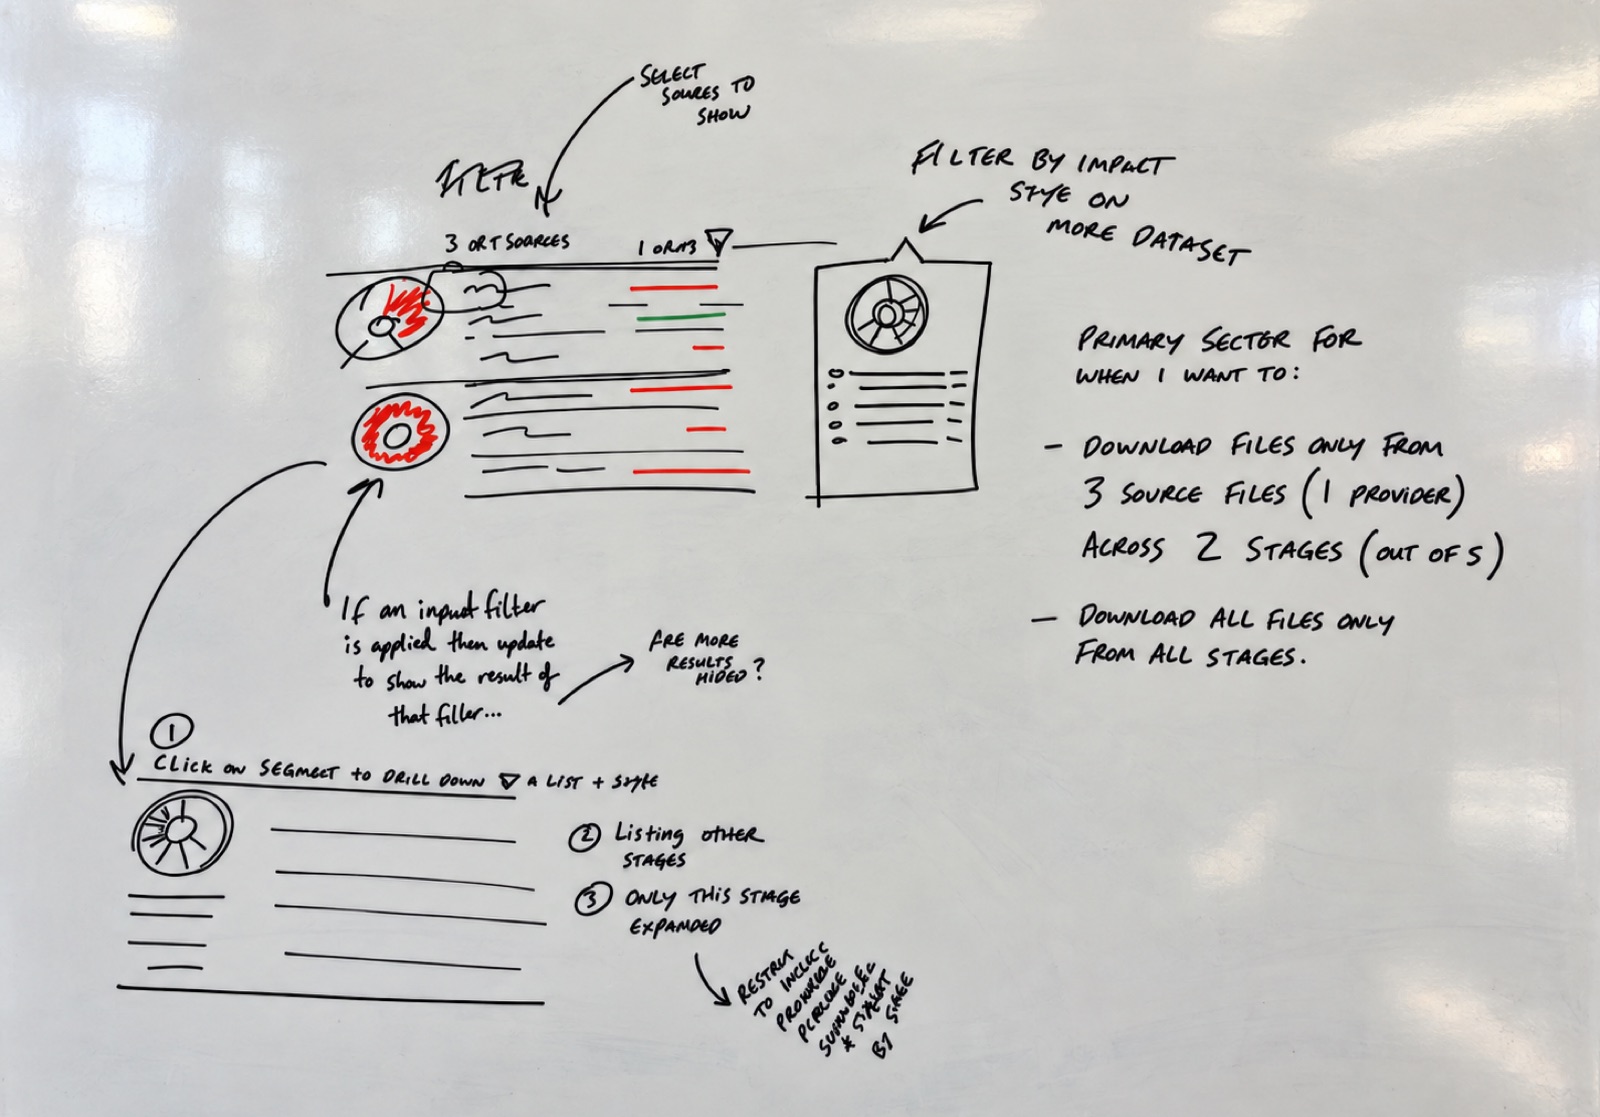 SELECT
SOURES TO
SHOW
3 ORT SOARCES
1 OR
FILTER BY IMPACT
STYE ON
MORE DATASET
PRIMARY SECTER FOR
WHEN I WANT TO:
- DOWNLOAD FILES ONLY FROM
3 SOURCE FILES (1 PROVIDER)
ACROSS 2 STAGES (OUT OF 5)
- DOWNLOAD ALL FILES ONLY
FROM ALL STAGES.
If an input filter
is applied then update
to show the result of
that filler...
ARE MORE
RESULTS
HIDED?
1
CLICK ON SEGMECT to DRILL DOWN ▽ A LIST + STYLE
2 Listing OTHER
STAGES
3 ONLY THIS STAGE
EXPAMDED
RESTRICT
TO INCLUCC
BY STAGE